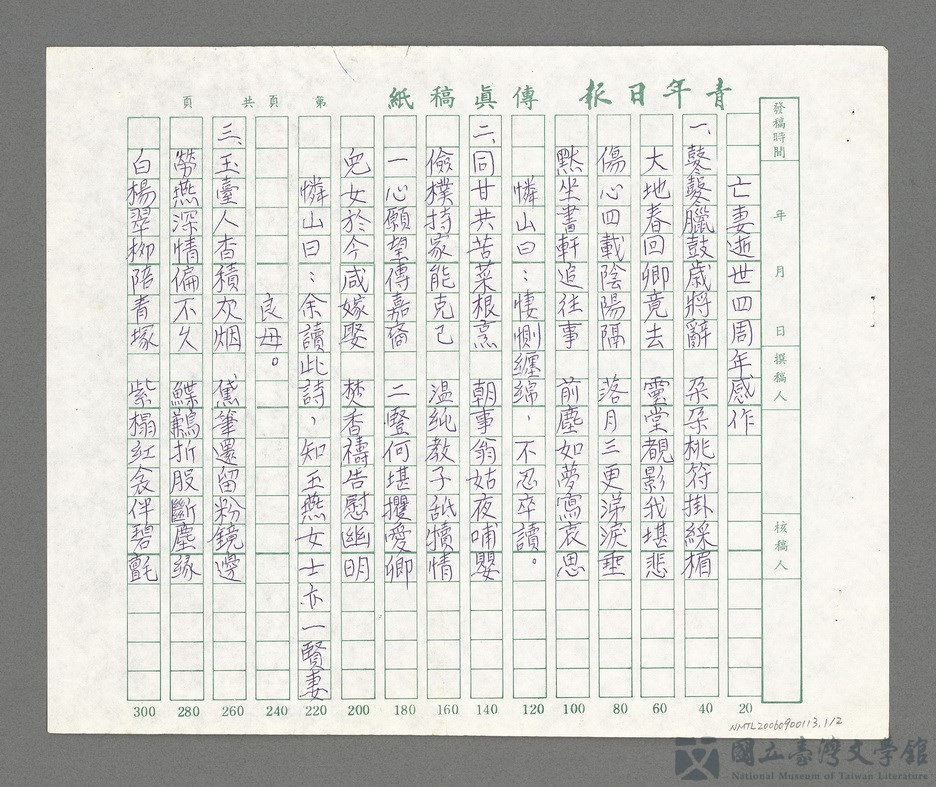 青年日報 傳真稿紙 第 頁共 頁
發稿時間 年 月 日 撰稿人 核稿人
亡妻逝世四周年感作
一、鼕鼕臘鼓歲將辭 朵朵桃符掛綵楣
大地春回卿竟去 靈堂覩影我堪悲
傷心四載陰陽隔 落月三更涕淚垂
默坐書軒追往事 前塵如夢寫哀思
憐山曰：悽惻纏綿，不忍卒讀。
二、同甘共苦菜根烹 朝事翁姑夜哺嬰
儉樸持家能克己 溫純教子舐犢情
一心願望傳嘉裔 二豎何堪攖愛卿
兒女於今咸嫁娶 焚香禱告慰幽明
憐山曰：余讀此詩，知玉燕女士亦一賢妻
良母。
三、玉臺人杳積灰烟 黛筆還留粉鏡邊
勞燕深情偏不久 鰈鶼折股斷塵緣
白楊翠柳陪青塚 紫榻紅衾伴碧氈
300 280 260 240 220 200 180 160 140 120 100 80 60 40 20
NMTL20060900113.1/2
國立臺灣文學館
National Museum of Taiwan Literature